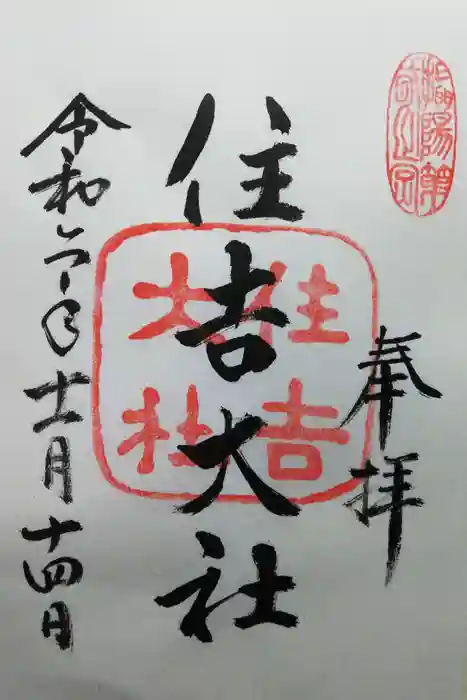 奉拝
住吉大社
住吉
大社
令和六年十一月十四日